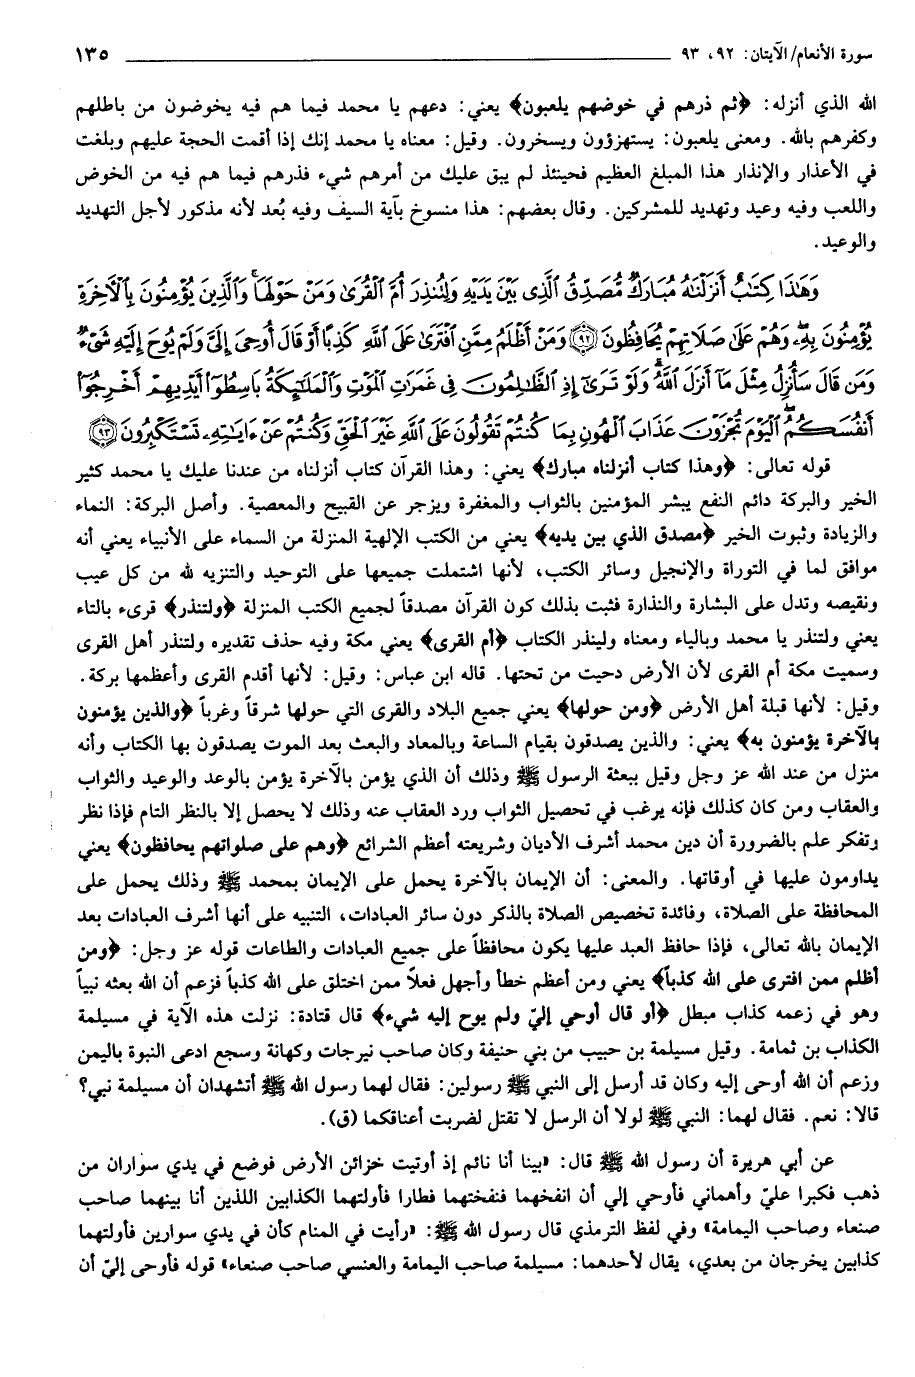 سورة الأنعام/الآيتان: ٩٢، ٩٣ ١٣٥
الله الذي أنزله: ﴿ثم ذرهم في خوضهم يلعبون﴾ يعني: دعهم يا محمد فيما هم فيه يخوضون من باطلهم
وكفرهم بالله. ومعنى يلعبون: يستهزؤون ويسخرون. وقيل: معناه يا محمد إنك إذا أقمت الحجة عليهم وبلغت
في الأعذار والإنذار هذا المبلغ العظيم فحينئذ لم يبق عليك من أمرهم شيء فذرهم فيما هم فيه من الخوض
واللعب وفيه وعيد وتهديد للمشركين. وقال بعضهم: هذا منسوخ بآية السيف وفيه بُعد لأنه مذكور لأجل التهديد
والوعيد.
وَهَٰذَا كِتَٰبٌ أَنزَلْنَٰهُ مُبَارَكٌ مُّصَدِّقُ ٱلَّذِى بَيْنَ يَدَيْهِ وَلِتُنذِرَ أُمَّ ٱلْقُرَىٰ وَمَنْ حَوْلَهَا ۚ وَٱلَّذِينَ يُؤْمِنُونَ بِٱلْءَاخِرَةِ
يُؤْمِنُونَ بِهِۦ ۖ وَهُمْ عَلَىٰ صَلَاتِهِمْ يُحَافِظُونَ ﴿٩٢﴾ وَمَنْ أَظْلَمُ مِمَّنِ ٱفْتَرَىٰ عَلَى ٱللَّهِ كَذِبًا أَوْ قَالَ أُوحِىَ إِلَىَّ وَلَمْ يُوحَ إِلَيْهِ شَىْءٌ
وَمَن قَالَ سَأُنزِلُ مِثْلَ مَآ أَنزَلَ ٱللَّهُ ۗ وَلَوْ تَرَىٰٓ إِذِ ٱلظَّٰلِمُونَ فِى غَمَرَٰتِ ٱلْمَوْتِ وَٱلْمَلَٰٓئِكَةُ بَاسِطُوٓا۟ أَيْدِيهِمْ أَخْرِجُوٓا۟
أَنفُسَكُمُ ۖ ٱلْيَوْمَ تُجْزَوْنَ عَذَابَ ٱلْهُونِ بِمَا كُنتُمْ تَقُولُونَ عَلَى ٱللَّهِ غَيْرَ ٱلْحَقِّ وَكُنتُمْ عَنْ ءَايَٰتِهِۦ تَسْتَكْبِرُونَ ﴿٩٣﴾
قوله تعالى: ﴿وهذا كتاب أنزلناه مبارك﴾ يعني: وهذا القرآن كتاب أنزلناه من عندنا عليك يا محمد كثير
الخير والبركة دائم النفع يبشر المؤمنين بالثواب والمغفرة ويزجر عن القبيح والمعصية. وأصل البركة: النماء
والزيادة وثبوت الخير ﴿مصدق الذي بين يديه﴾ يعني من الكتب الإلهية المنزلة من السماء على الأنبياء يعني أنه
موافق لما في التوراة والإنجيل وسائر الكتب، لأنها اشتملت جميعها على التوحيد والتنزيه لله من كل عيب
ونقيصه وتدل على البشارة والنذارة فثبت بذلك كون القرآن مصدقاً لجميع الكتب المنزلة ﴿ولتنذر﴾ قرىء بالتاء
يعني ولتنذر يا محمد وبالياء ومعناه ولينذر الكتاب ﴿أم القرى﴾ يعني مكة وفيه حذف تقديره ولتنذر أهل القرى
وسميت مكة أم القرى لأن الأرض دحيت من تحتها. قاله ابن عباس: وقيل: لأنها أقدم القرى وأعظمها بركة.
وقيل: لأنها قبلة أهل الأرض ﴿ومن حولها﴾ يعني جميع البلاد والقرى التي حولها شرقاً وغرباً ﴿والذين يؤمنون
بالآخرة يؤمنون به﴾ يعني: والذين يصدقون بقيام الساعة وبالمعاد والبعث بعد الموت يصدقون بها الكتاب وأنه
منزل من عند الله عز وجل وقيل ببعثة الرسول ﷺ وذلك أن الذي يؤمن بالآخرة يؤمن بالوعد والوعيد والثواب
والعقاب ومن كان كذلك فإنه يرغب في تحصيل الثواب ورد العقاب عنه وذلك لا يحصل إلا بالنظر التام فإذا نظر
وتفكر علم بالضرورة أن دين محمد أشرف الأديان وشريعته أعظم الشرائع ﴿وهم على صلواتهم يحافظون﴾ يعني
يداومون عليها في أوقاتها. والمعنى: أن الإيمان بالآخرة يحمل على الإيمان بمحمد ﷺ وذلك يحمل على
المحافظة على الصلاة، وفائدة تخصيص الصلاة بالذكر دون سائر العبادات، التنبيه على أنها أشرف العبادات بعد
الإيمان بالله تعالى، فإذا حافظ العبد عليها يكون محافظاً على جميع العبادات والطاعات قوله عز وجل: ﴿ومن
أظلم ممن افترى على الله كذباً﴾ يعني ومن أعظم خطأ وأجهل فعلاً ممن اختلق على الله كذباً فزعم أن الله بعثه نبياً
وهو في زعمه كذاب مبطل ﴿أو قال أوحي إليّ ولم يوح إليه شيء﴾ قال قتادة: نزلت هذه الآية في مسيلمة
الكذاب بن ثمامة. وقيل مسيلمة بن حبيب من بني حنيفة وكان صاحب نيرجات وكهانة وسجع ادعى النبوة باليمن
وزعم أن الله أوحى إليه وكان قد أرسل إلى النبي ﷺ رسولين: فقال لهما رسول الله ﷺ أتشهدان أن مسيلمة نبي؟
قالا: نعم. فقال لهما: النبي ﷺ لولا أن الرسل لا تقتل لضربت أعناقكما (ق).
عن أبي هريرة أن رسول الله ﷺ قال: «بينا أنا نائم إذ أوتيت خزائن الأرض فوضع في يدي سواران من
ذهب فكبرا عليّ وأهماني فأوحي إلي أن انفخهما فنفختهما فطارا فأولتهما الكذابين اللذين أنا بينهما صاحب
صنعاء وصاحب اليمامة» وفي لفظ الترمذي قال رسول الله ﷺ: «رأيت في المنام كأن في يدي سوارين فأولتهما
كذابين يخرجان من بعدي، يقال لأحدهما: مسيلمة صاحب اليمامة والعنسي صاحب صنعاء» قوله فأوحى إليّ أن